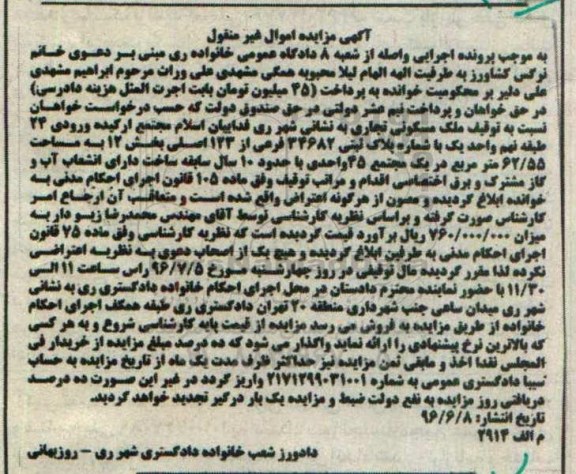 آگهی مزایده اموال غیر منقول
به موجب پرونده اجرایی واصله از شعبه ۸ دادگاه عمومی خانواده ری مبنی بر دعوی خانم
نرگس کشاورز به طرفیت الهه الهام لیلا محبوبه همگی مشهدی علی وراث مرحوم ابراهیم مشهدی
علی دلیر بر محکومیت خوانده به پرداخت (۴۵ میلیون تومان بابت اجرت المثل هزینه دادرسی)
در حق خواهان و پرداخت نیم عشر دولتی در حق صندوق دولت که حسب درخواست خواهان
نسبت به توقیف ملک مسکونی تجاری به نشانی شهر ری فداییان اسلام مجتمع ارکیده ورودی ۲۴
طبقه نهم واحد یک با شماره پلاک ثبتی ۳۴۶۸۲ فرعی از ۱۲۳ اصلی بخش ۱۲ به مساحت
۶۲/۵۵ متر مربع در یک مجتمع ۴۵واحدی با حدود ۱۰ سال سابقه ساخت دارای انشعاب آب و
گاز مشترک و برق اختصاصی اقدام و مراتب توقیف وفق ماده ۱۰۵ قانون اجرای احکام مدنی به
خوانده ابلاغ گردیده و مصون از هرگونه اعتراض واقع شده است و متعاقب آن ارجاع امر
کارشناس صورت گرفته و براساس نظریه کارشناسی توسط آقای مهندس محمدرضا زیو دار به
میزان ۷۶۰/۰۰۰/۰۰۰ ریال برآورد قیمت گردیده است که نظریه کارشناسی وفق ماده ۷۵ قانون
اجرای احکام مدنی به طرفین ابلاغ گردیده و هیچ یک از اصحاب دعوی به نظریه اعتراضی
نکرده لذا مقرر گردیده مال توقیفی در روز چهارشنبه مورخ ۹۶/۷/۵ راس ساعت ۱۱ الی
۱۱/۳۰ با حضور نماینده محترم دادستان در محل اجرای احکام خانواده دادگستری ری به نشانی
شهر ری میدان جنب شهرداری منطقه ۲۰ تهران دادگستری ری طبقه همکف اجرای احکام
خانواده از طریق مزایده به فروش می رسد مزایده از قیمت پایه کارشناسی شروع و به هر کسی
که بالاترین نرخ پیشنهادی را ارائه نماید واگذار می شود که ده درصد مبلغ مزایده از خریدار فی
المجلس نقدا اخذ و مابقی ثمن مزایده نیز حداکثر ظرف مدت یک ماه از تاریخ مزایده به حساب
سیبا دادگستری عمومی به شماره ۲۱۷۱۲۹۹۰۳۱۰۰۱ واریز گردد در غیر این صورت ده درصد
دریافتی روز مزایده به نفع دولت ضبط و مزایده یک بار درگیر تجدید خواهد گردید.
تاریخ انتشار: ۹۶/۶/۸
م الف ۲۹۱۴
دادورز شعب خانواده دادگستری شهر ری – روزبهانی